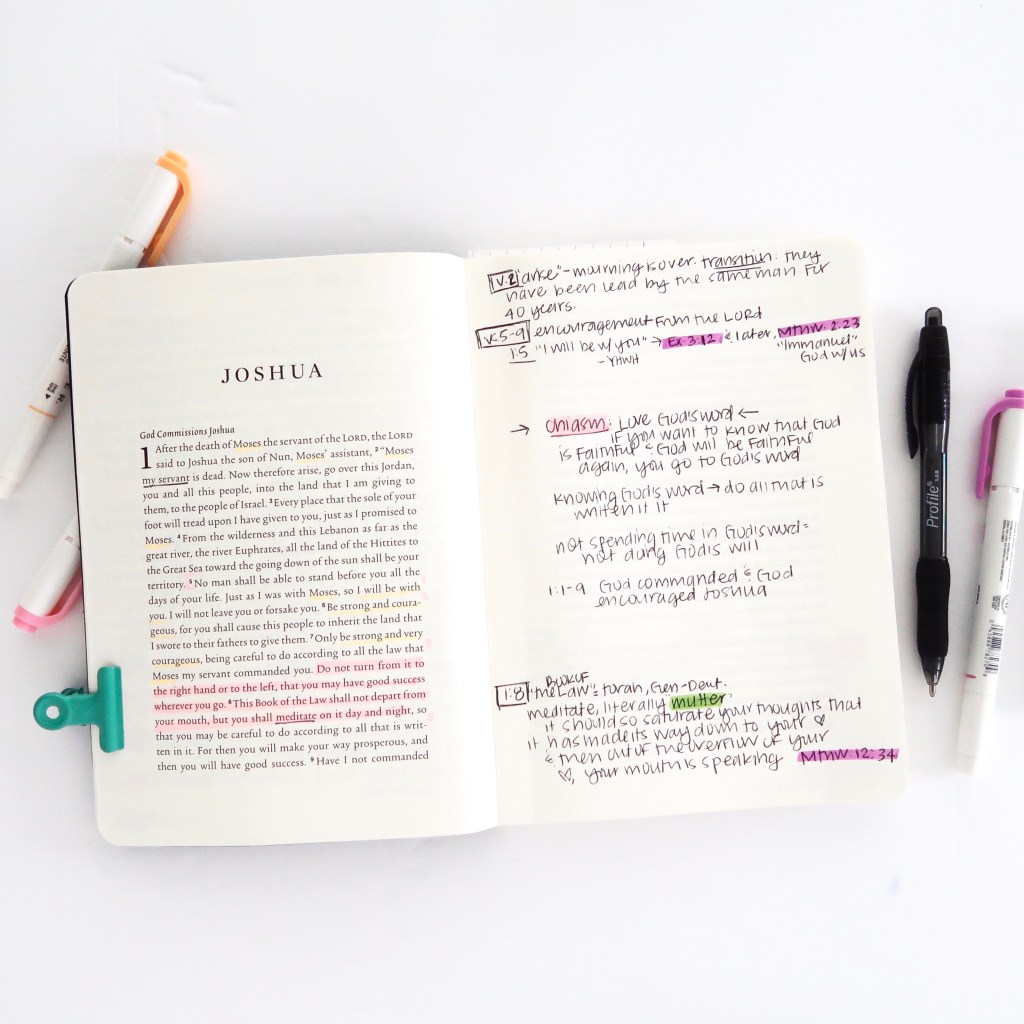 JOSHUA
God Commissions Joshua
1 After the death of Moses the servant of the LORD, the LORD
said to Joshua the son of Nun, Moses' assistant, 2 "Moses
my servant is dead. Now therefore arise, go over this Jordan,
you and all this people, into the land that I am giving to
them, to the people of Israel. 3 Every place that the sole of your
foot will tread upon I have given to you, just as I promised to
Moses. 4 From the wilderness and this Lebanon as far as the
great river, the river Euphrates, all the land of the Hittites to
the Great Sea toward the going down of the sun shall be your
territory. 5 No man shall be able to stand before you all the
days of your life. Just as I was with Moses, so I will be with
you. I will not leave you or forsake you. 6 Be strong and coura-
geous, for you shall cause this people to inherit the land that
I swore to their fathers to give them. 7 Only be strong and very
courageous, being careful to do according to all the law that
Moses my servant commanded you. Do not turn from it to
the right hand or to the left, that you may have good success
wherever you go. 8 This Book of the Law shall not depart from
your mouth, but you shall meditate on it day and night, so
that you may be careful to do according to all that is writ-
ten in it. For then you will make your way prosperous, and
then you will have good success. 9 Have I not commanded
v.2 "arise" - mourning is over. transition: they
have been lead by the same man for
40 years.
v.5-9 encouragement from the LORD
1:5 "I will be w/ you" → Ex 3:12 & later, Mthw. 2:23
- YHWH "Immanuel"
God w/ us
→ chiasm: Love God's word ←
if you want to know that God
is faithful & God will be faithful
again, you go to God's word
knowing God's word → do all that is
written it it
not spending time in God's word =
not doing God's will
1:1-9 God commanded & God
encouraged Joshua
Book of
1:8 "the Law" = torah, Gen-Deut.
meditate, literally "mutter"
it should so saturate your thoughts that
it has made its way down to your ♡
& then out of the overflow of your
♡, your mouth is speaking Mthw. 12:34
Profile